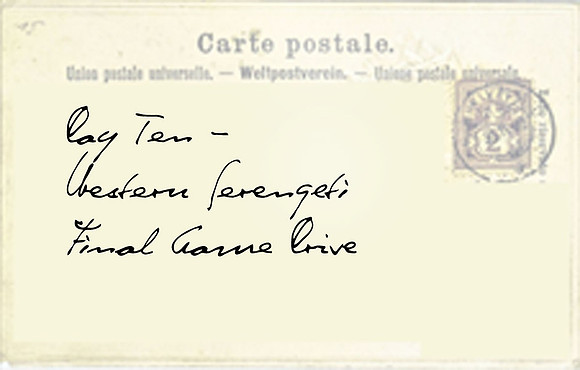 Carte postale.
Union postale universelle. — Weltpostverein. — Unione postale universale.
Day Ten –
Western Serengeti
Final Game Drive
2